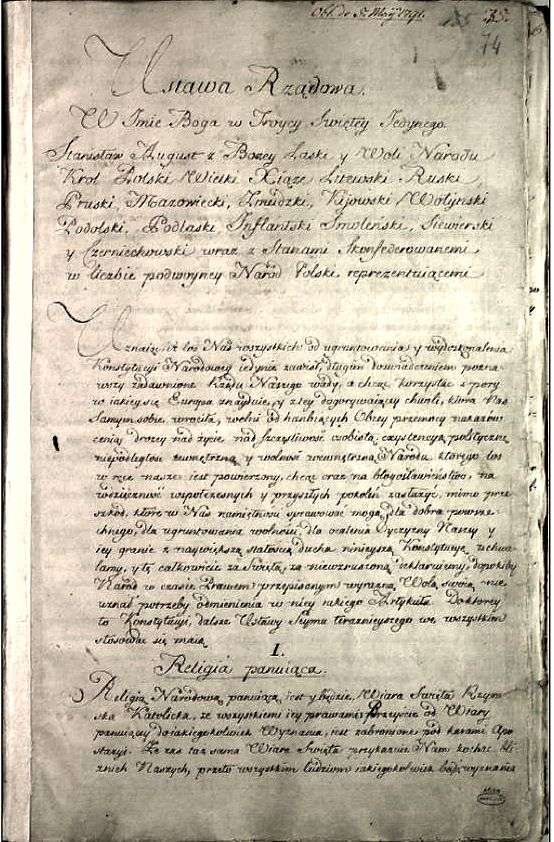 Obl. de 5. Maij 1791.
135 35.
74
Ustawa Rządowa.
W Imie Boga w Troycy Swiętey Jedynego.
Stanisław August z Bożey Łaski y Woli Narodu
Krol Polski Wielki Xiąże Litewski Ruski
Pruski, Mazowiecki, Żmudzki, Kijowski Wołyński
Podolski, Podlaski Inflantski Smoleński, Siewierski
y Czerniechowski wraz z Stanami Skonfederowanemi
w liczbie podwoyney Naród Polski reprezentuiącemi
Uznaiąc, iż los Nas wszystkich od ugruntowania y wydoskonalenia
Konstytucyi Narodowey iedynie zawisł, długim doswiadczeniem pozna-
wszy zadawnione Rządu Naszego wady, a chcąc korzystać z pory
w iakiey się Europa znayduie, y z tey dogorywaiącey chwili, która Nas
samym sobie wrociła, wolni od hanbiących Obcey przemocy nakazów
ceniąc drożey nad życie nad szczęśliwosc osobistą, exystencyą polityczną
niepodległosc zewnętrzną y wolność wewnętrzną Narodu, ktorego los
w ręce nasze iest powierzony, chcąc oraz na błogosławieństwo, na
wdzięczność wspołczesnych y przyszłych pokoleń zasłużyc, mimo prze-
szkód, które w Nas namiętnosci sprawować mogą, dla dobra powsze-
chnego, dla ugruntowania wolności, dla ocalenia Oyczyzny Naszey y
iey granic z naywiększą stałoscią ducha ninieyszą Konstytucyę uchwa-
lamy, y tę całkowicie za Swiętą, za niewzruszoną deklaruiemy, dopokiby
Naród w czasie Prawem przepisanym wyrazną Wolą swoią nie
uznał potrzeby odmienienia w niey iakiego Artykułu. Do ktorey
to Konstytucyi, dalsze Ustawy Seymu teraznieyszego we wszystkim
stosować się maią
I.
Religia panuiąca.
Religią Narodową panuiącą, iest y będzie Wiara Swięta Rzym-
ska Katolicka, ze wszystkiemi iey prawami, Przeyscie od Wiary
panuiącey do iakiegokolwiek Wyznania, iest zabronione pod karami Apo-
stazyi. Ze zas taż sama Wiara Swięta przykazuie Nam kochać bli-
znich Naszych, przeto wszystkim ludziom iakiegokolwiek bądź wyznania